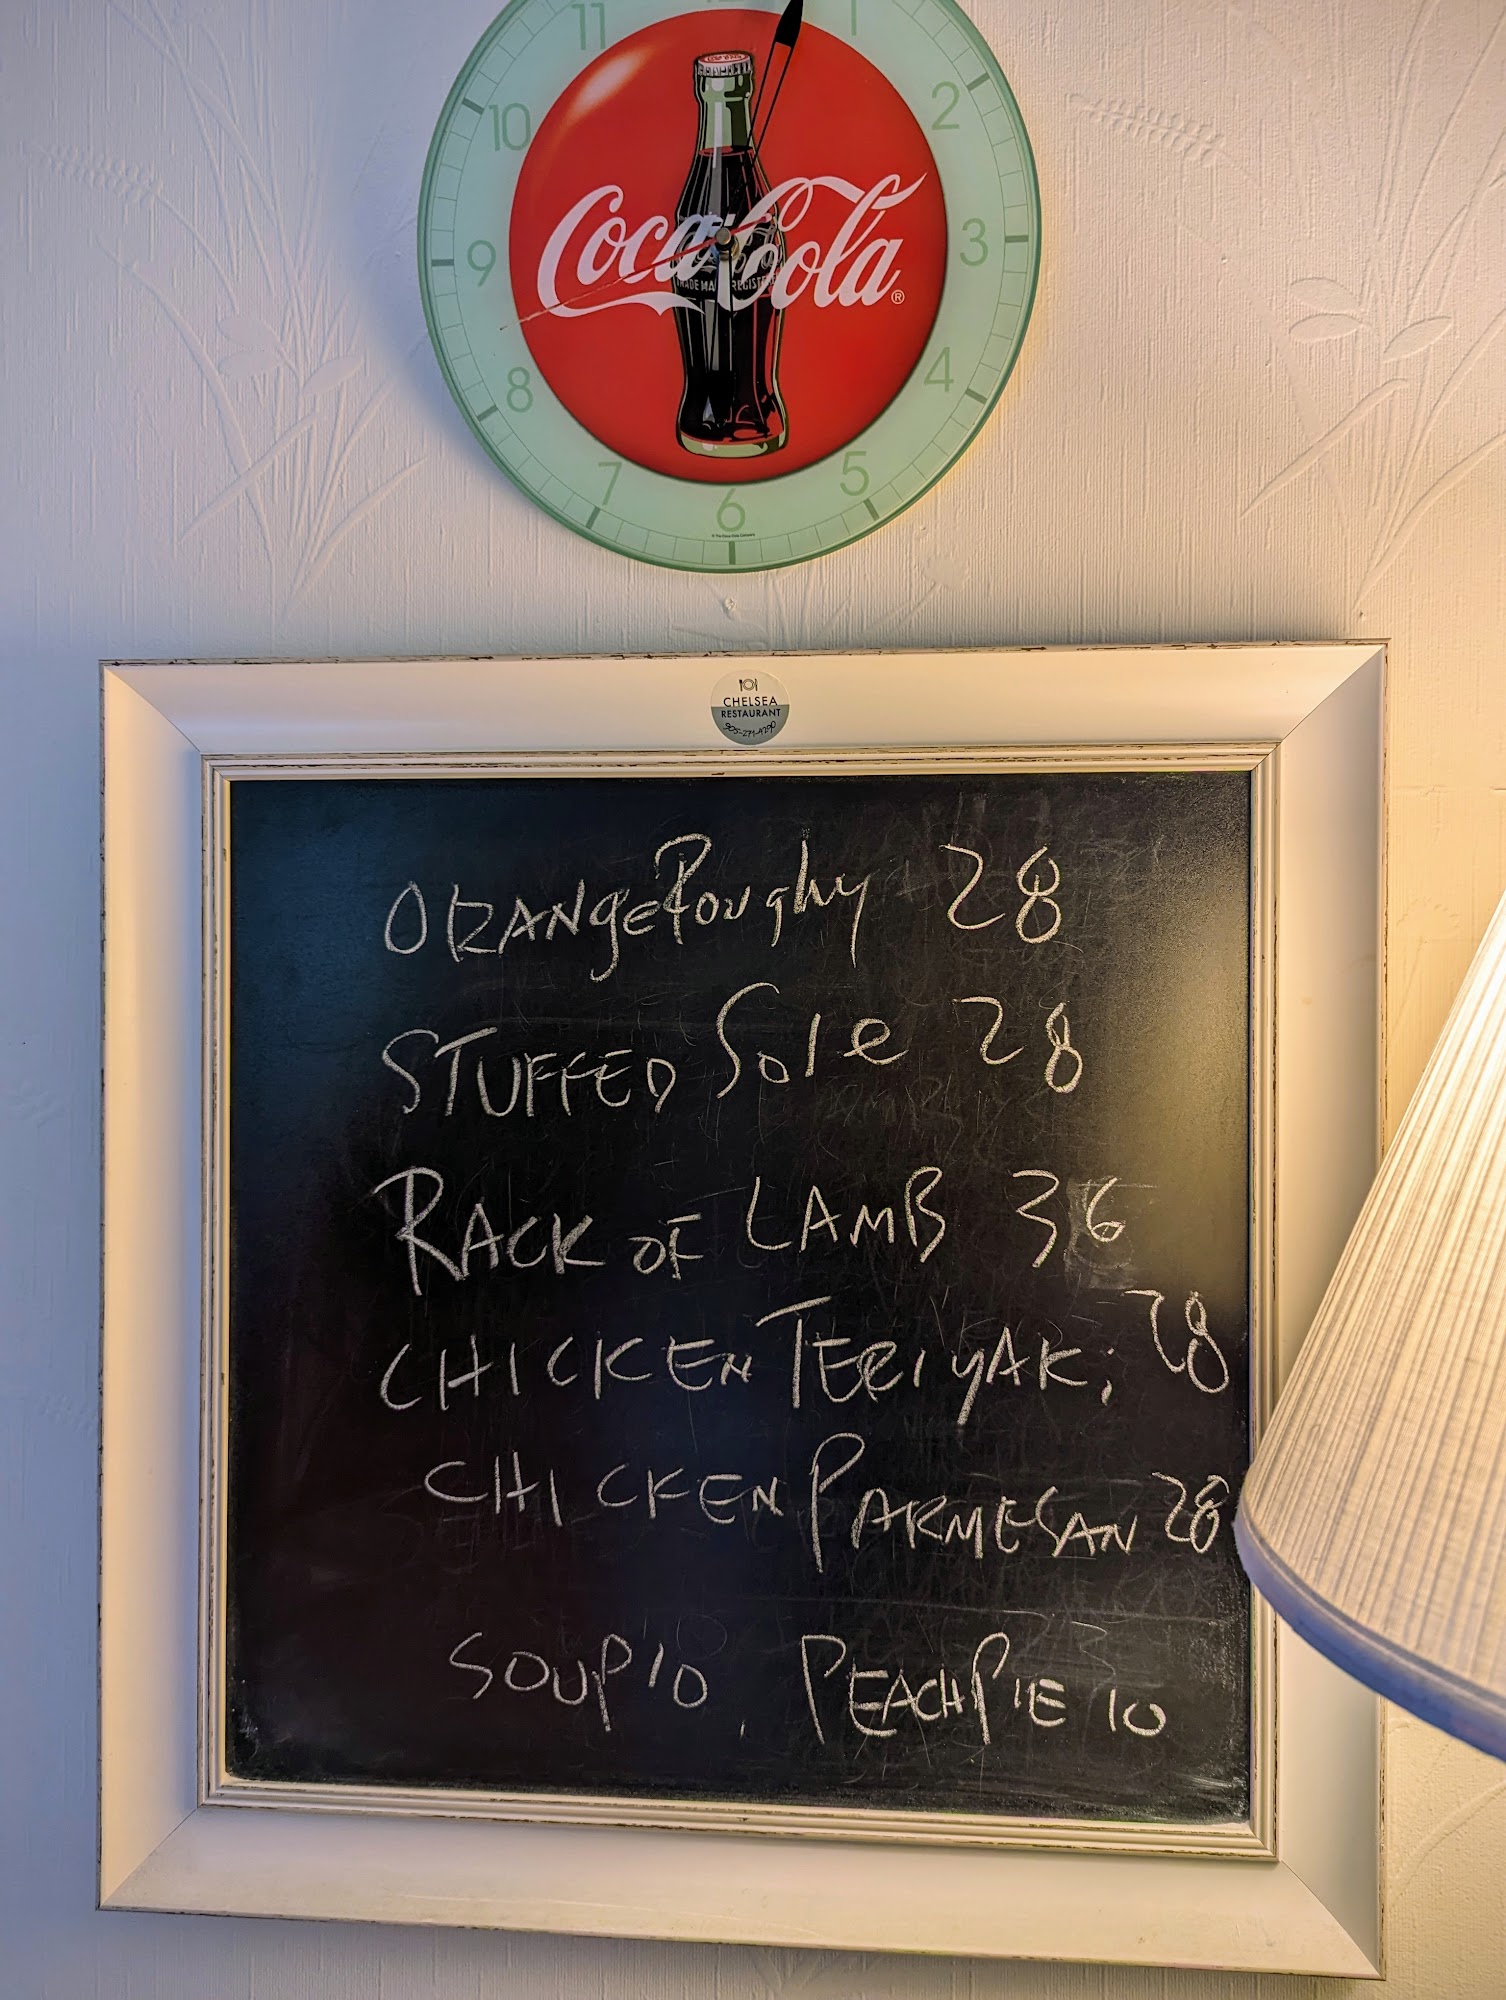 11
1
10
2
Coca-Cola®
TRADE MARK REGISTERED
9
3
8
4
7
5
6
© The Coca-Cola Company
CHELSEA
RESTAURANT
ORANGE Roughy - 28
STUFFED Sole 28
RACK OF LAMB 36
CHICKEN TERIYAKi 28
CHICKEN PARMESAN 28
SOUP 10 PEACH PIE 10